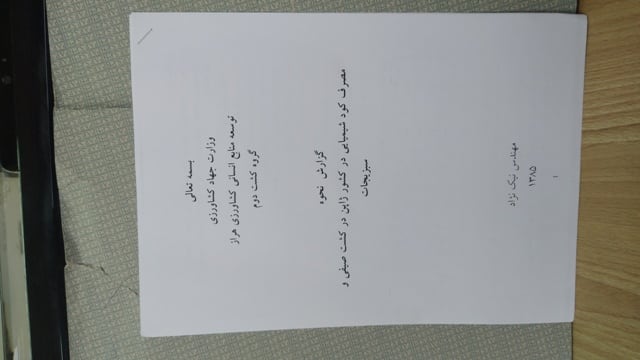 بسمه تعالی
وزارت جهاد کشاورزی
توسعه منابع انسانی کشاورزی هراز
گروه کشت دوم
گزارش نحوه
مصرف کود شیمیایی در کشور ژاپن در کشت صیفی و
سبزیجات
مهندس نیک نژاد
۱۳۸۵
۱